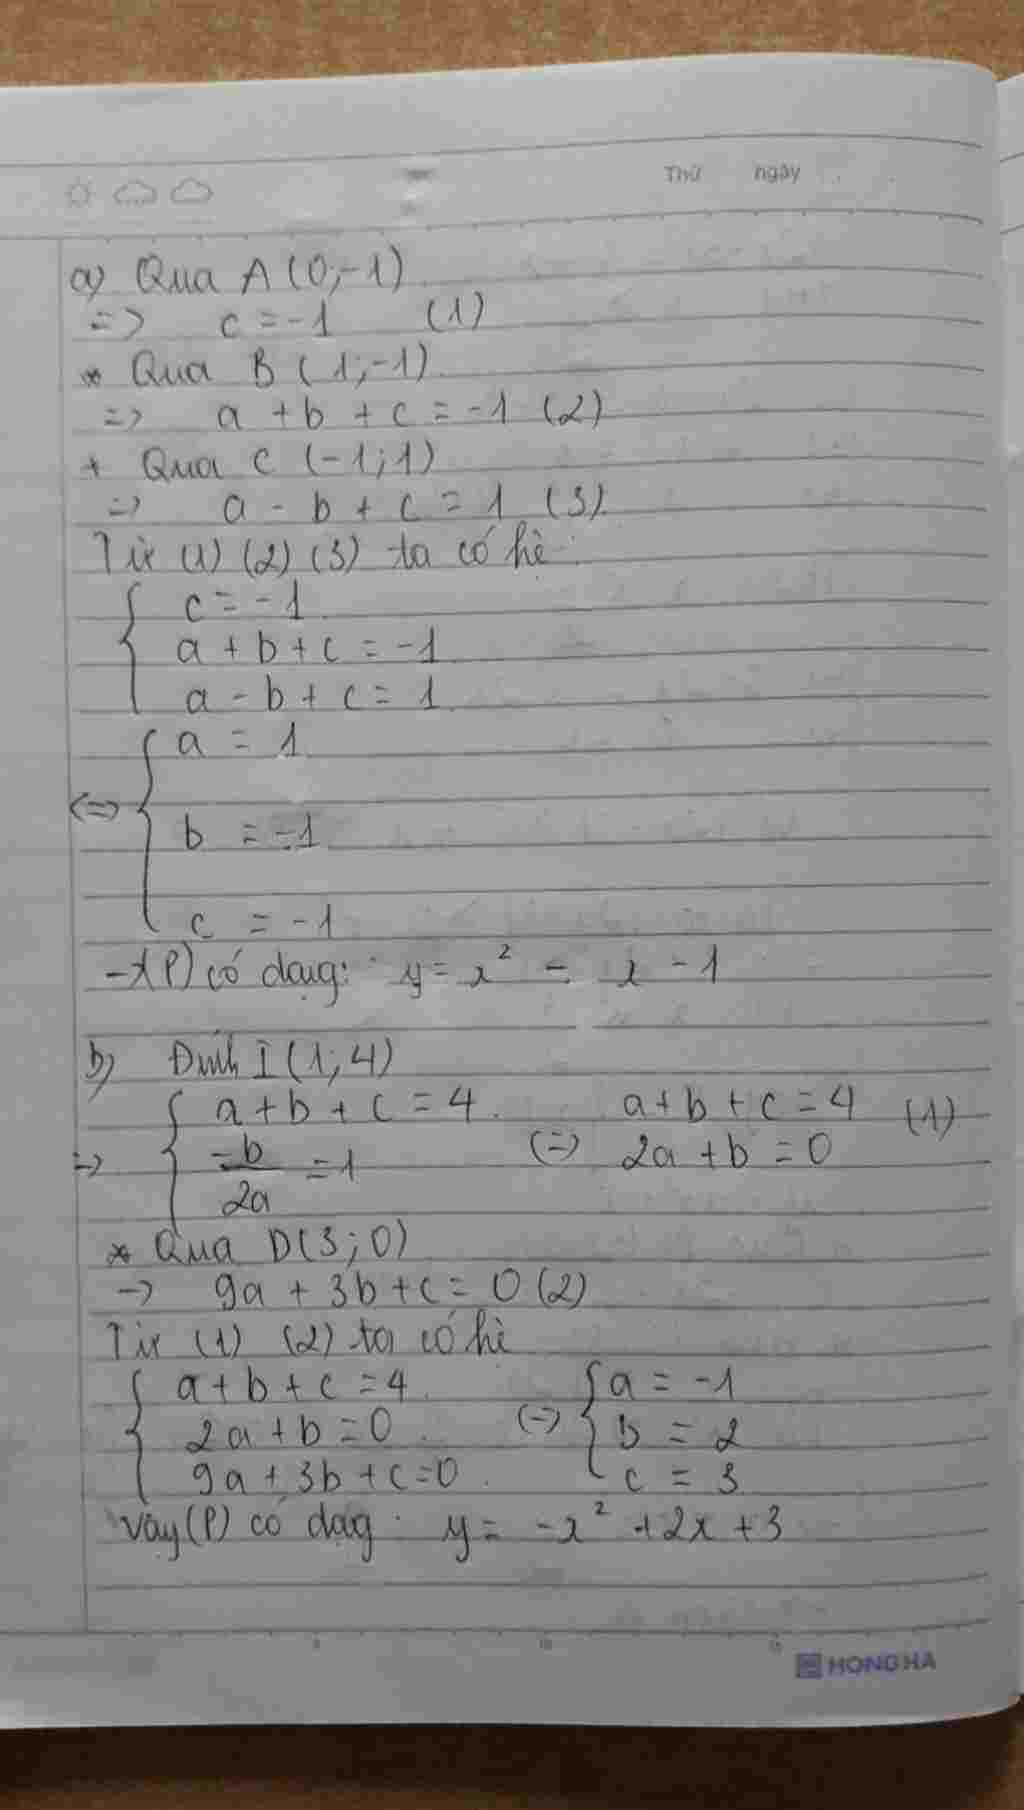 Thứ ngày
a) Qua A (0;-1)
=> c = -1 (1)
* Qua B (1;-1)
=> a + b + c = -1 (2)
+ Qua C (-1;1)
=> a - b + c = 1 (3)
Từ (1) (2) (3) ta có hệ:
{ c = -1
a + b + c = -1
a - b + c = 1
<=> { a = 1
b = -1
c = -1
(P) có dạng: y = x² - x - 1
b) Đỉnh I (1;4)
=> { a + b + c = 4 (=) a + b + c = 4 (1)
-b/2a = 1 2a + b = 0
* Qua D(3;0)
-> 9a + 3b + c = 0 (2)
Từ (1) (2) ta có hệ
{ a + b + c = 4 (=) { a = -1
2a + b = 0 b = 2
9a + 3b + c = 0 c = 3
Vậy (P) có dạg: y = -x² + 2x + 3
HONG HA